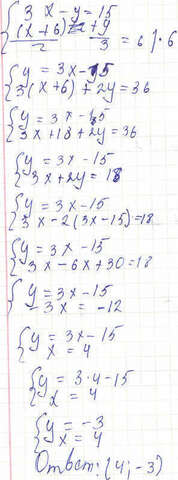 3x-y=15
(x+6)/2 + y/3 = 6 | · 6
y = 3x-15
3(x+6)+2y=36
y = 3x-15
3x+18+2y=36
y = 3x-15
3x+2y = 18
y = 3x-15
3x-2(3x-15)=18
y = 3x-15
3x-6x+30=18
y = 3x-15
-3x = -12
y = 3x-15
x = 4
y = 3·4-15
x = 4
y = -3
x = 4
Ответ: (4; -3)